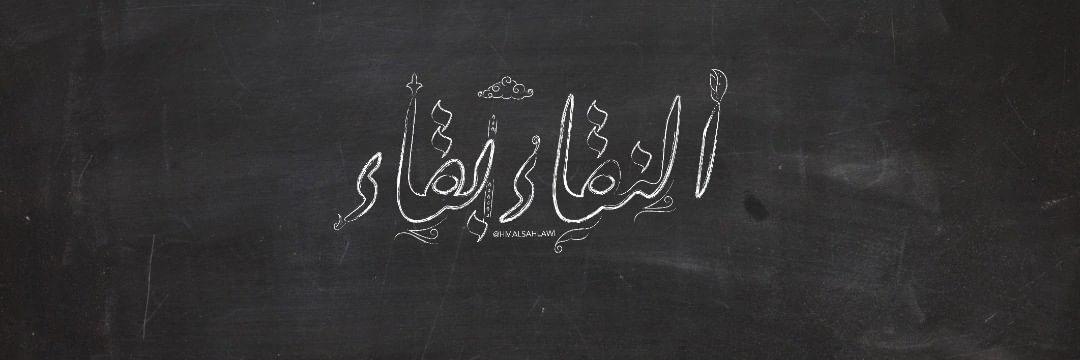 النقاء بقاء
@HM.ALSAHLAWI